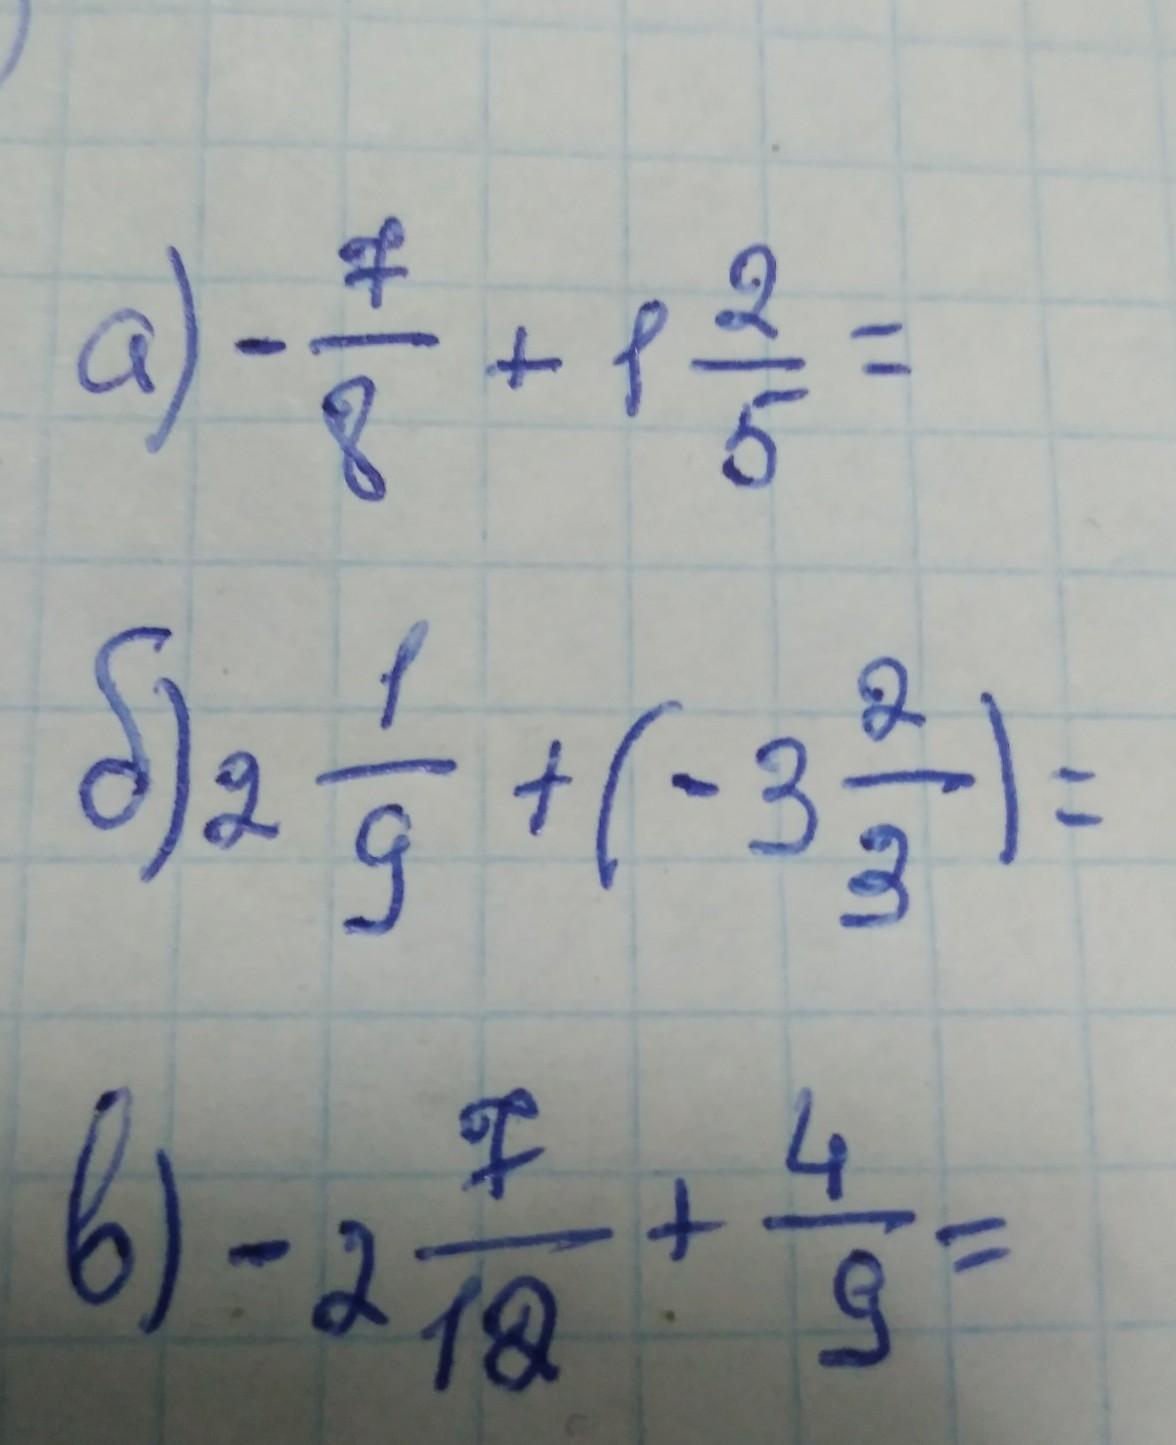 а) - 7/8 + 1 2/5 =
б) 2 1/9 + (- 3 2/3) =
в) - 2 7/12 + 4/9 =